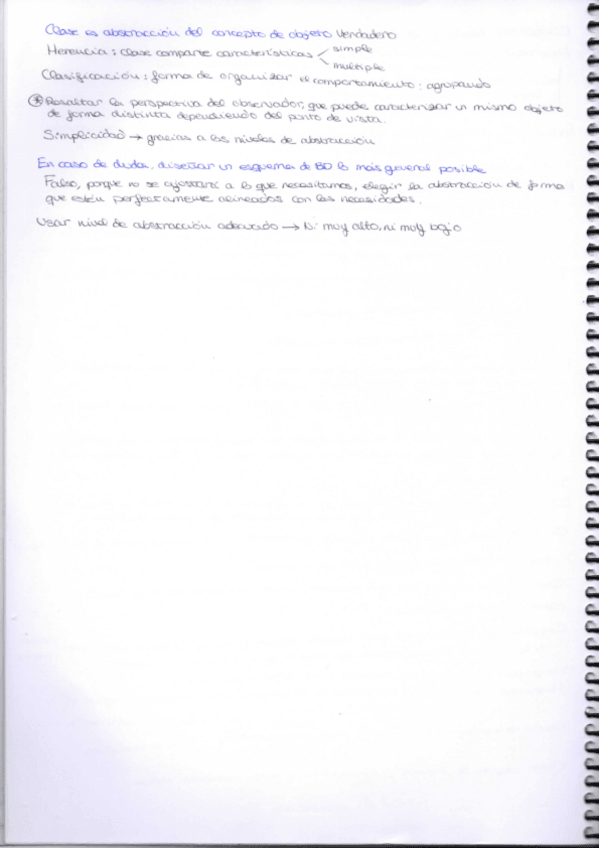 Clase es abstracción del concepto de objeto Verdadero
Herencia: clase comparte características simple
multiple
Clasificación: forma de organizar el comportamiento: agrupando
* Resaltar la perspectiva del observador, que puede caracterizar un mismo objeto
de forma distinta dependiendo del punto de vista.
Simplicidad → gracias a los niveles de abstracción
En caso de duda, diseñar un esquema de BD lo más general posible
Falso, porque no se ajustará a lo que necesitamos, elegir la abstracción de forma
que estén perfectamente alineados con las necesidades.
Usar nivel de abstracción adecuado → Ni muy alto, ni muy bajo